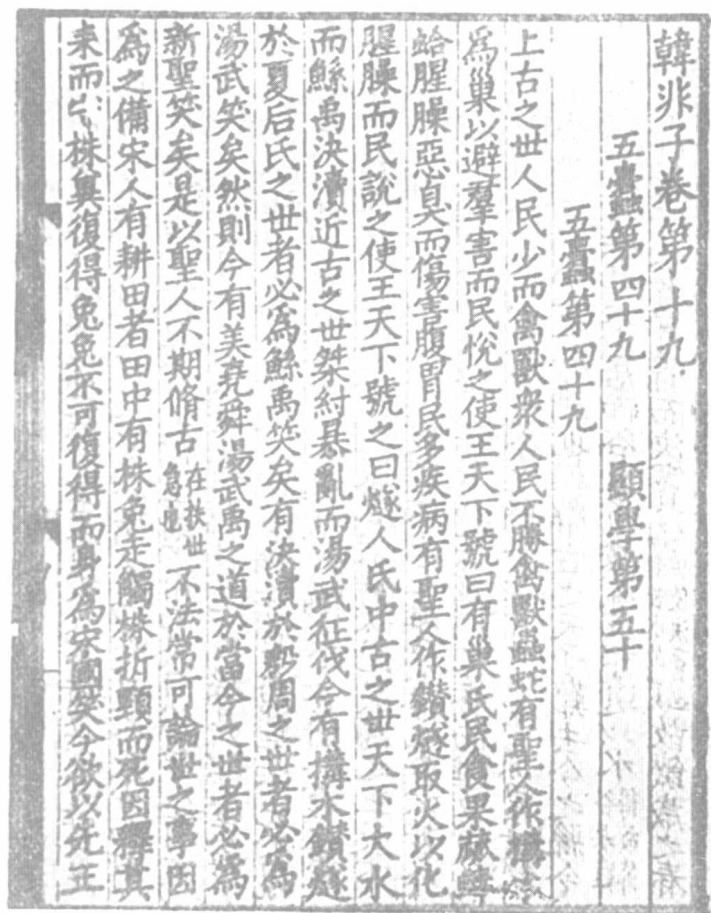 韓非子卷第十九
五蠹第四十九　顯學第五十
五蠹第四十九
上古之世人民少而禽獸衆人民不勝禽獸蟲蛇有聖人作搆木
爲巢以避羣害而民悅之使王天下號曰有巢氏民食果蓏蜯
蛤腥臊惡臭而傷害腹胃民多疾病有聖人作鑽燧取火以化
腥臊而民說之使王天下號之曰燧人氏中古之世天下大水
而鯀禹決瀆近古之世桀紂暴亂而湯武征伐今有搆木鑽燧
於夏后氏之世者必爲鯀禹笑矣有決瀆於殷周之世者必爲
湯武笑矣然則今有美堯舜湯武禹之道於當今之世者必爲
新聖笑矣是以聖人不期脩古在扶世急也不法常可論世之事因
爲之備宋人有耕田者田中有株兔走觸株折頸而死因釋其
耒而守株兾復得兔兔不可復得而身爲宋國笑今欲以先王